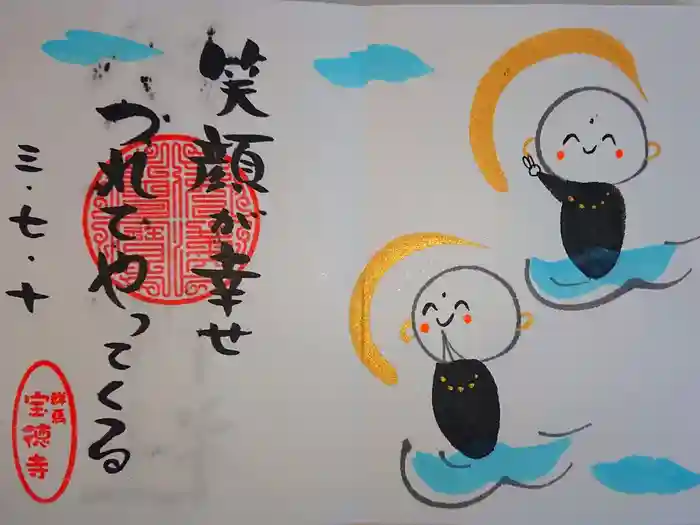 笑顔が幸せ
づれてやってくる
三・七・十
群馬
宝徳寺